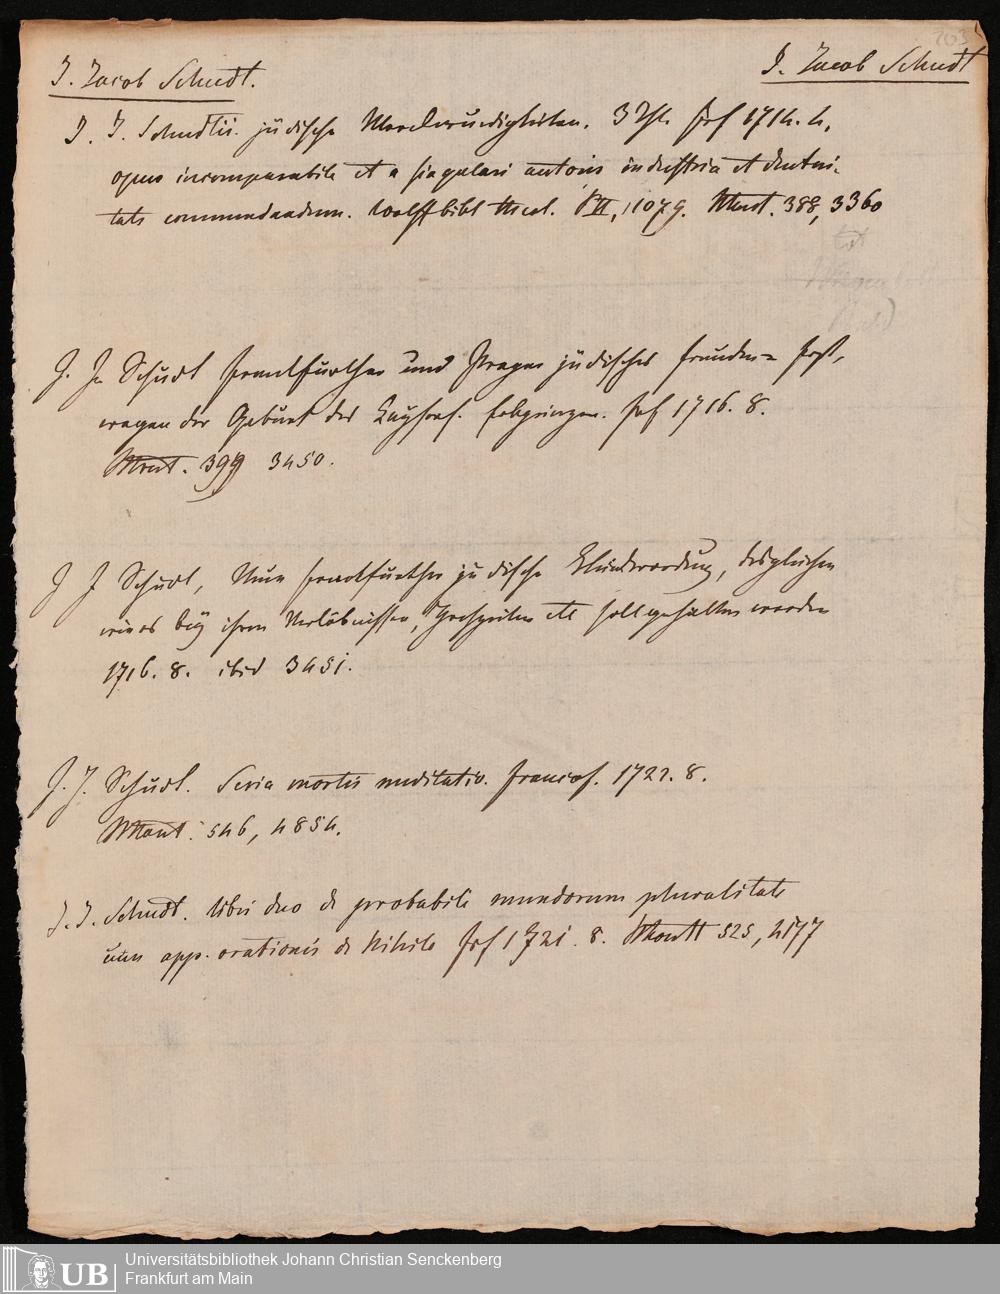 203
J. Jacob Schudt.
J. Jacob Schudt
J. J. Schudtii. jüdische Merckwürdigkeiten. 3 Thl. frf 1714. 4.
opus incomparabile et a singulari autoris industria et
commendandum. Wolff bibl. P II, 1107 388, 3360
J. J. Schudt Frankfurther und Prager jüdisches Freuden= Fest,
wegen der Geburt des Kayserl. Erbprinzen. frf 1716. 8.
399 3450.
J J Schudt, Neue franckfurther jüdische Kleiderordnung, desgleichen
wie es bey ihren Verlöbnissen, Hochzeiten etc soll gehalten werden
1716. 8. ibid 3451.
J. J. Schudt. Seria mortis meditatio. Francof. 1722. 8.
546, 4854.
J. J. Schudt. libri duo de probabili mundorum pluralitate
cum app. orationis de Nihilo frf 1721. 8. 525, 4177
UB
Universitätsbibliothek Johann Christian Senckenberg
Frankfurt am Main